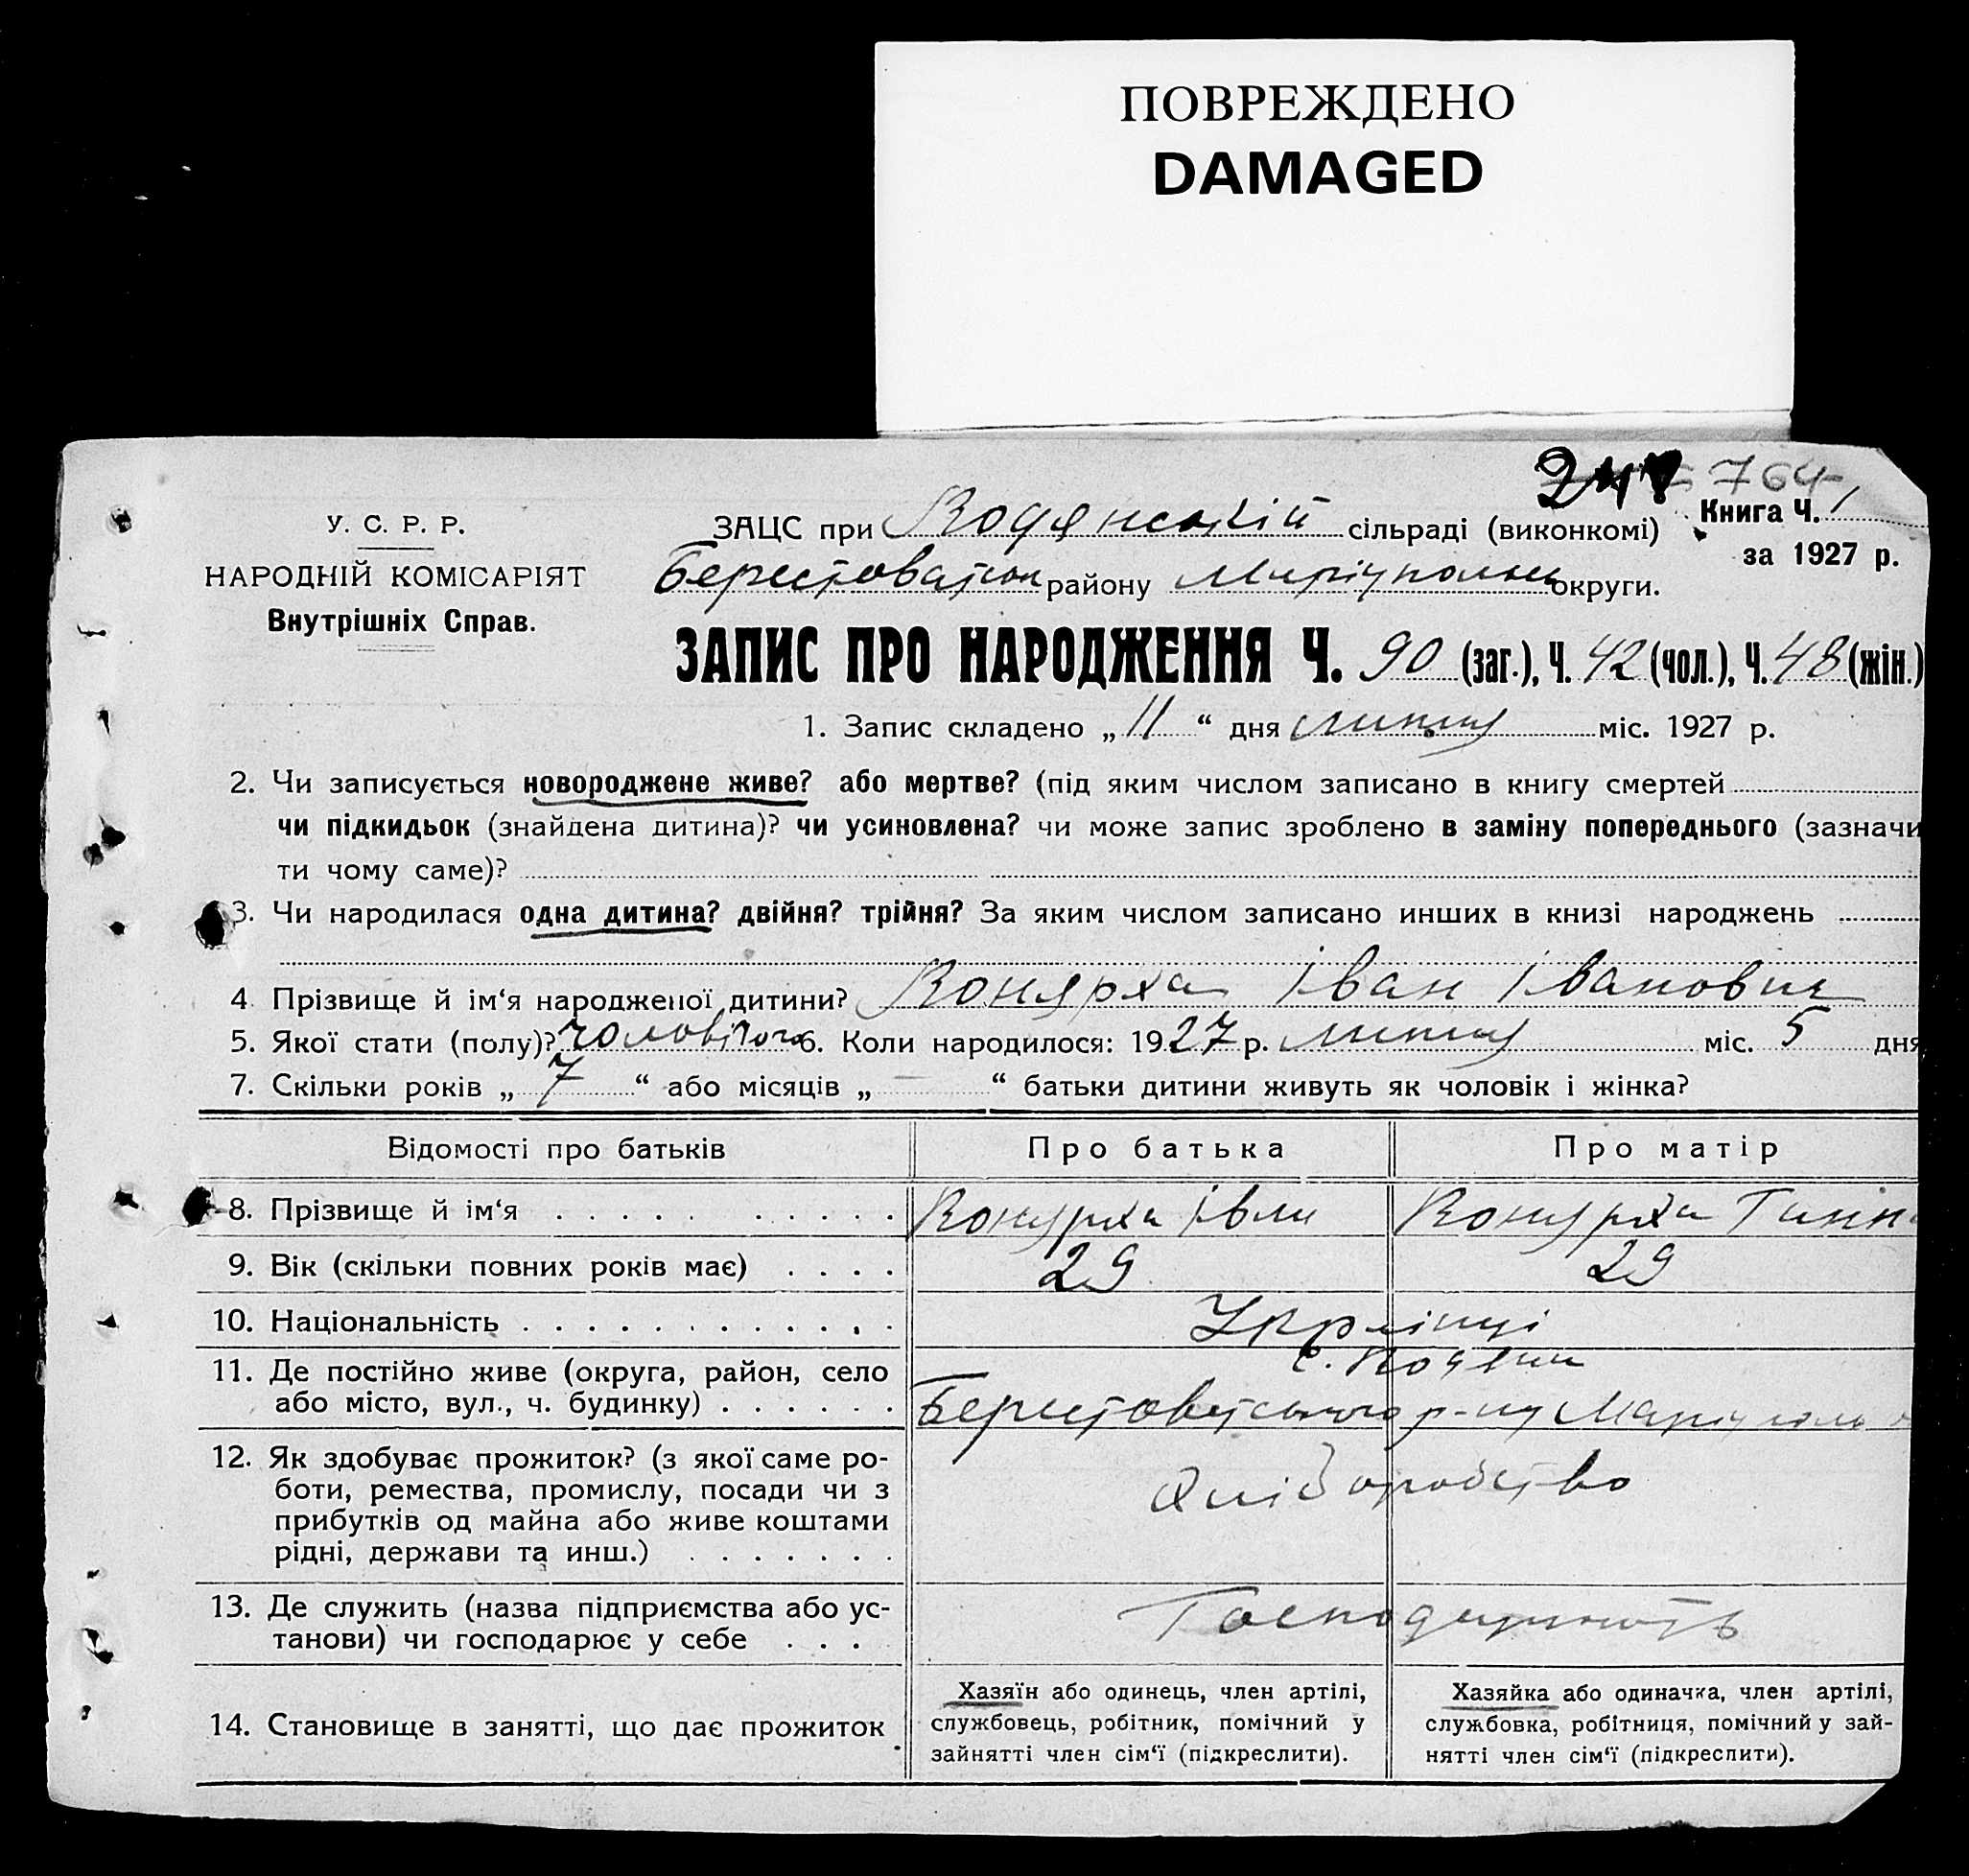 ПОВРЕЖДЕНО
DAMAGED
764
У. С. Р. Р.
НАРОДНІЙ КОМІСАРІЯТ
Внутрішніх Справ.
ЗАЦС при Кодянській сільраді (виконкомі) Книга Ч. 1
за 1927 р.
району округи.
ЗАПИС ПРО НАРОДЖЕННЯ Ч. 90 (заг.), Ч. 42 (чол.), Ч. 48 (жін.)
1. Запис складено „ 11 “ дня липня міс. 1927 р.
2. Чи записується новороджене живе? або мертве? (під яким числом записано в книгу смертей
чи підкидьок (знайдена дитина)? чи усиновлена? чи може запис зроблено в заміну попереднього (зазначи
ти чому саме)?
3. Чи народилася одна дитина? двійня? трійня? За яким числом записано инших в книзі народжень
4 Прізвище й ім‘я народженої дитини? Конярха Іван Іванович
5. Якої стати (полу)? чоловічого 6. Коли народилося: 1927 р. липня міс. 5 дня
7. Скільки років „ 7 “ або місяців „ — “ батьки дитини живуть як чоловік і жінка?
Відомості про батьків Про батька Про матір
8. Прізвище й ім‘я Конярха Іван Конярха
9. Вік (скільки повних років має) 29 29
10. Національність Українці
11. Де постійно живе (округа, район, село с.
або місто, вул., ч. будинку) Берестоватського р-ну
12. Як здобуває прожиток? (з якої саме ро-
боти, ремества, промислу, посади чи з Хліборобство
прибутків од майна або живе коштами
рідні, держави та инш.)
13. Де служить (назва підприємства або ус-
танови) чи господарює у себе Господарюють
14. Становище в занятті, що дає прожиток
Хазяїн або одинець, член артілі,
службовець, робітник, помічний у
зайнятті член сім‘ї (підкреслити).
Хазяйка або одиначка, член артілі,
службовка, робітниця, помічний у зай-
нятті член сім‘ї (підкреслити).